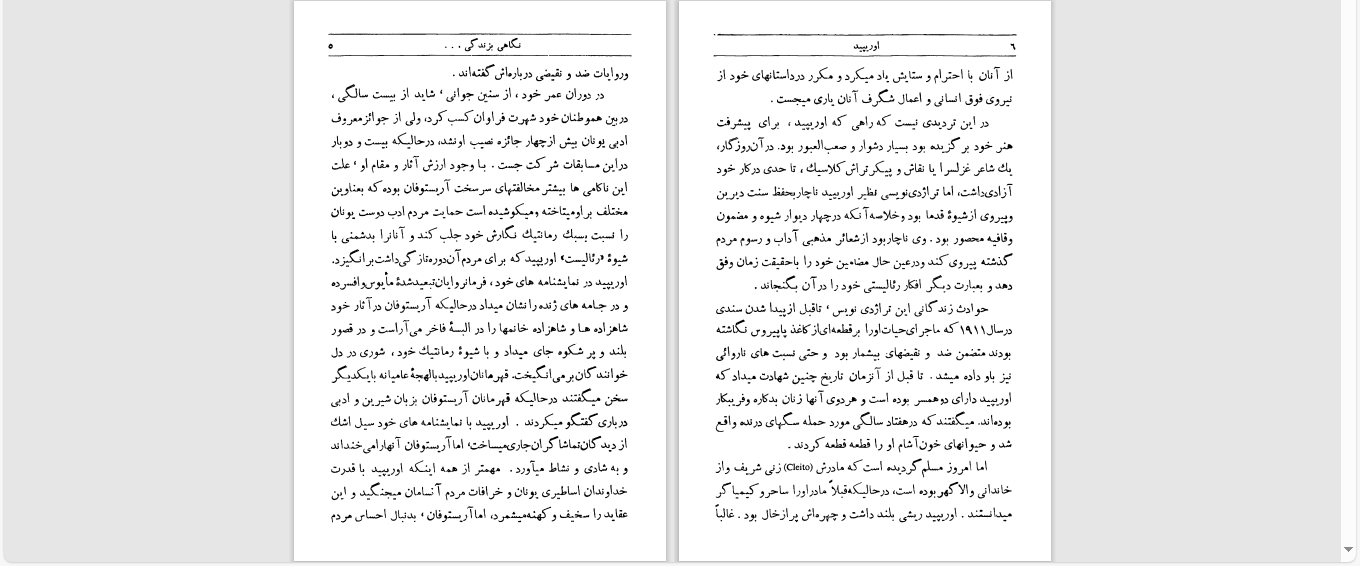 نگاهی بزندگی . . .
٥
وروایات ضد و نقیضی درباره‌اش گفته‌اند .
در دوران عمر خود ، از سنین جوانی ، شاید از بیست سالگی ،
دربین هموطنان خود شهرت فراوان کسب کرد، ولی از جوائزمعروف
ادبی یونان بیش ازچهار جائزه نصیب اونشد، درحالیکه بیست و دوبار
دراین مسابقات شرکت جست . با وجود ارزش آثار و مقام او ، علت
این ناکامی ها بیشتر مخالفتهای سرسخت آریستوفان بوده که بعناوین
مختلف براومیتاخته ومیکوشیده است حمایت مردم ادب دوست یونان
را نسبت بسبك رمانتیك نگارش خود جلب کند و آنانرا بدشمنی با
شیوهٔ «رئالیست» اوریپید که برای مردم آن‌دوره‌تازگی‌داشت‌برانگیزد.
اوریپید در نمایشنامه های خود ، فرمانروایان‌تبعیدشدهٔ مأیوس‌وافسرده
و در جامه های ژنده را نشان میداد درحالیکه آریستوفان در آثار خود
شاهزاده ها و شاهزاده خانمها را در البسهٔ فاخر می‌آراست و در قصور
بلند و پر شکوه جای میداد و با شیوهٔ رمانتیك خود ، شوری در دل
خوانندگان برمی‌انگیخت. قهرمانان اوریپید بالهجهٔ عامیانه بایکدیگر
سخن میگفتند درحالیکه قهرمانان آریستوفان بزبان شیرین و ادبی
درباری گفتگو میکردند . اوریپید با نمایشنامه های خود سیل اشك
از دیدگان‌تماشاگران‌جاری‌میساخت، اما آریستوفان آنهارامی‌خنداند
و به شادی و نشاط میآورد . مهمتر از همه اینکه اوریپید با قدرت
خداوندان اساطیری یونان و خرافات مردم آنسامان میجنگید و این
عقاید را سخیف و کهنه‌میشمرد، اما آریستوفان ، بدنبال احساس مردم
٦
اوریپید
از آنان با احترام و ستایش یاد میکرد و مکرر درداستانهای خود از
نیروی فوق انسانی و اعمال شگرف آنان یاری میجست .
در این تردیدی نیست که راهی که اوریپید ، برای پیشرفت
هنر خود برگزیده بود بسیار دشوار و صعب‌العبور بود. در آن‌روزگار،
یك شاعر غزلسرا یا نقاش و پیکرتراش کلاسیك ، تا حدی درکار خود
آزادی‌داشت، اما تراژدی‌نویسی نظیر اوریپید ناچاربحفظ سنت دیرین
وپیروی ازشیوهٔ قدما بود وخلاصه آنکه درچهار دیوار شیوه و مضمون
وقافیه محصور بود . وی ناچاربود ازشعائر مذهبی آداب و رسوم مردم
گذشته پیروی کند ودرعین حال مضامین خود را باحقیقت زمان وفق
دهد و بعبارت دیگر افکار رئالیستی خود را درآن بگنجاند .
حوادث زندگانی این تراژدی نویس ، تاقبل ازپیدا شدن سندی
درسال ١٩١١ که ماجرای‌حیات‌اورا برقطعه‌ای‌ازکاغذ پاپیروس نگاشته
بودند متضمن ضد و نقیضهای بیشمار بود و حتی نسبت های ناروائی
نیز باو داده میشد . تا قبل از آنزمان تاریخ چنین شهادت میداد که
اوریپید دارای دوهمسر بوده است و هردوی آنها زنان بدکاره وفریبکار
بوده‌اند. میگفتند که درهفتاد سالگی مورد حمله سگهای درنده واقع
شد و حیوانهای خون‌آشام او را قطعه قطعه کردند .
اما امروز مسلم گردیده است که مادرش (Cleito) زنی شریف واز
خاندانی والاگهر بوده است، درحالیکه‌قبلاً مادراورا ساحر و کیمیاگر
میدانستند . اوریپید ریشی بلند داشت و چهره‌اش پرازخال بود . غالباً